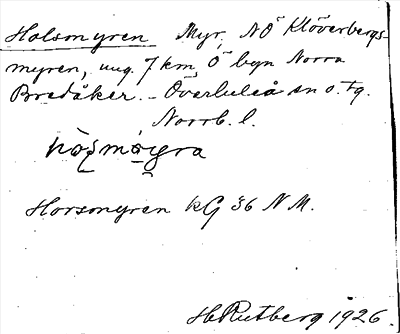 Holsmyren Myr, NÖ Klöverbergs-
myren, ung. 7 km Ö byn Norra
Bredåker. - Överluleå sn o. tg.
Norrb. l.
Horsmyren kG 36 N M.
HRutberg 1926.